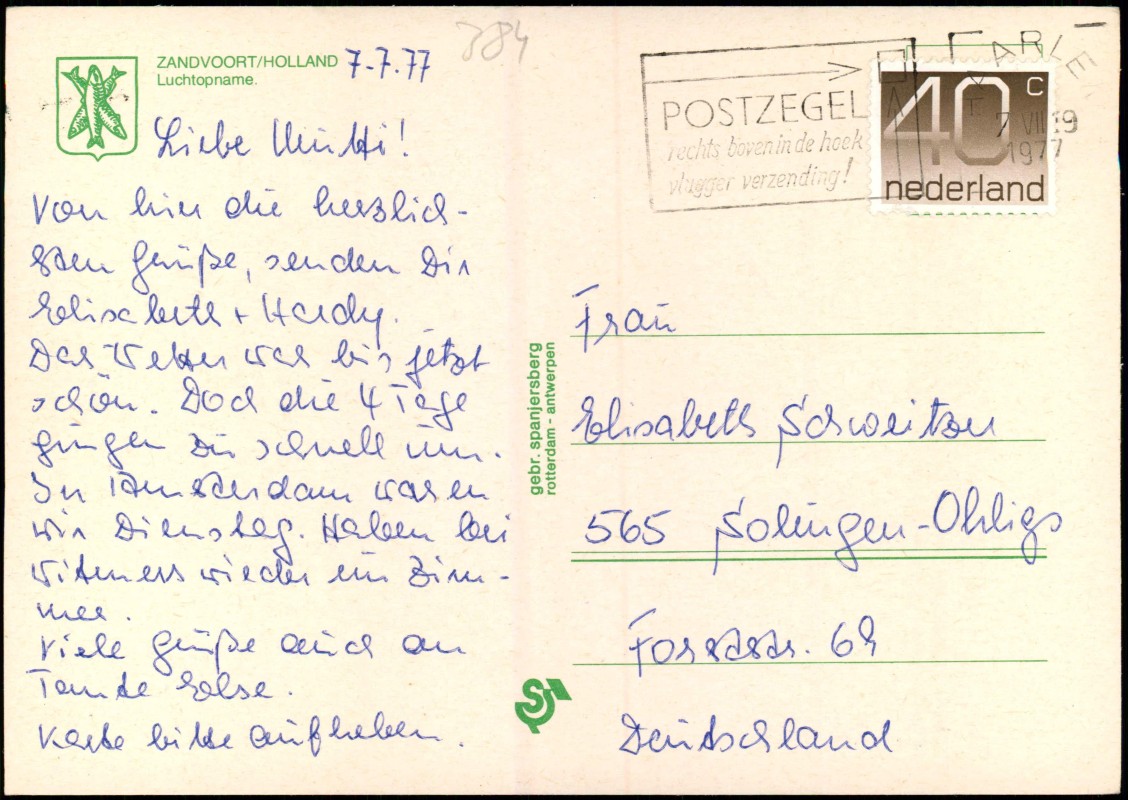 384
ZANDVOORT/HOLLAND 7.7.77
Luchtopname.
Liebe Mutti!
Von hier die herzlich-
sten Grüße, senden Dir
Elisabeth + Hardy.
Das Wetter war bis jetzt
schön. Doch die 4 Tage
gingen zu schnell um.
In Amsterdam waren
wir Dienstag. Haben bei
wieder ein Zim-
mer.
Viele Grüße auch an
Tante Else.
Karte bitte aufheben.
gebr. spanjersberg
rotterdam - antwerpen
POSTZEGEL
rechts boven in de hoek
vlugger verzending!
7 VII 19
1977
40 c
nederland
Frau
Elisabeth Schweitzer
565 Solingen-Ohligs
Forststr. 69
Deutschland